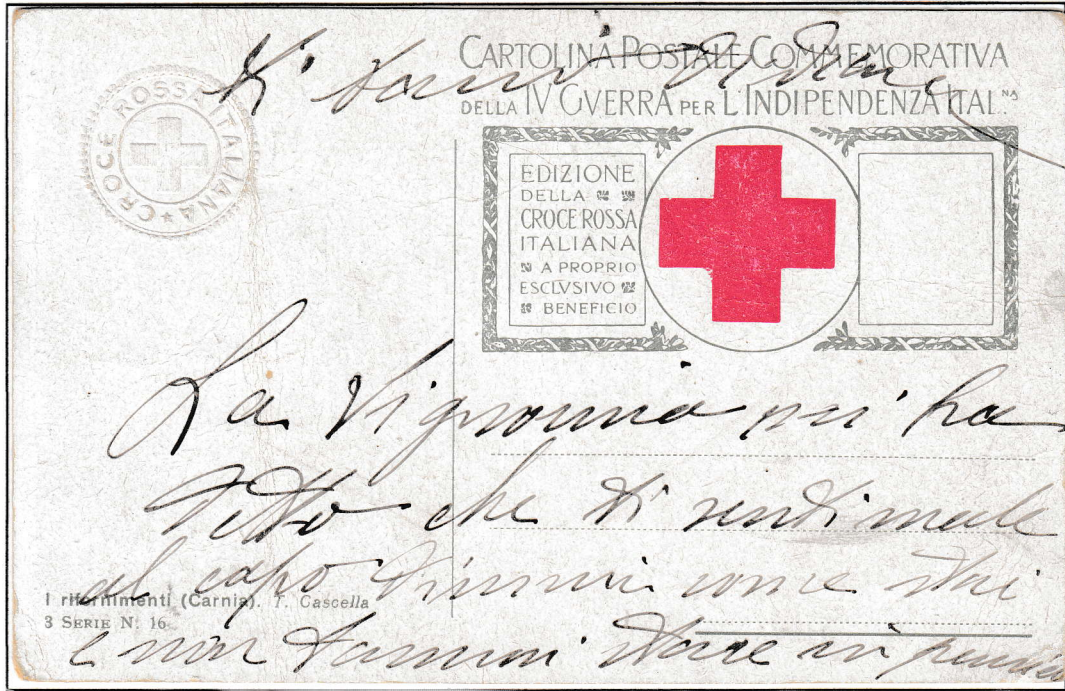 CROCE ROSSA ITALIANA
CARTOLINA POSTALE COMMEMORATIVA
DELLA IV GVERRA PER L'INDIPENDENZA ITAL.NA
EDIZIONE
DELLA
CROCE ROSSA
ITALIANA
A PROPRIO
ESCLVSIVO
BENEFICIO
La Signorina mi ha
detto che ti senti male
al capo dimmi come stai
e non farmi stare in
I rifornimenti (Carnia). T. Cascella
3 SERIE N. 16